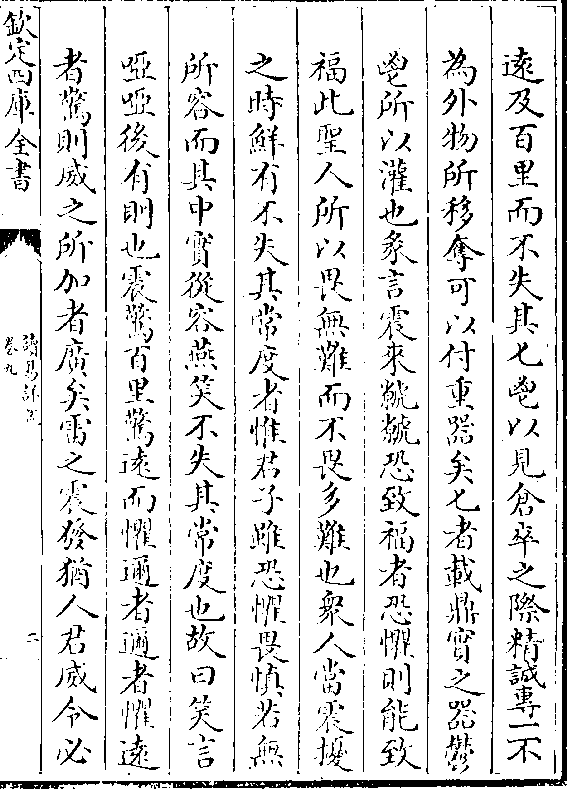 逺及百里而不失其匕鬯以見倉卒之際精誠專一不
為外物所移奪可以付重器矣匕者載鼎實之器鬱
鬯所以灌也彖言震來虩虩恐致福者恐懼則能致
福此聖人所以畏無難而不畏多難也衆人當震擾
之時鮮有不失其常度者惟君子雖恐懼畏慎若無
所容而其中實從容燕笑不失其常度也故曰笑言
啞啞後有則也震驚百里驚逺而懼邇者邇者懼逺
者驚則威之所加者廣矣雷之震發猶人君威令必
欽定四庫全書
讀易詳說
卷九
二